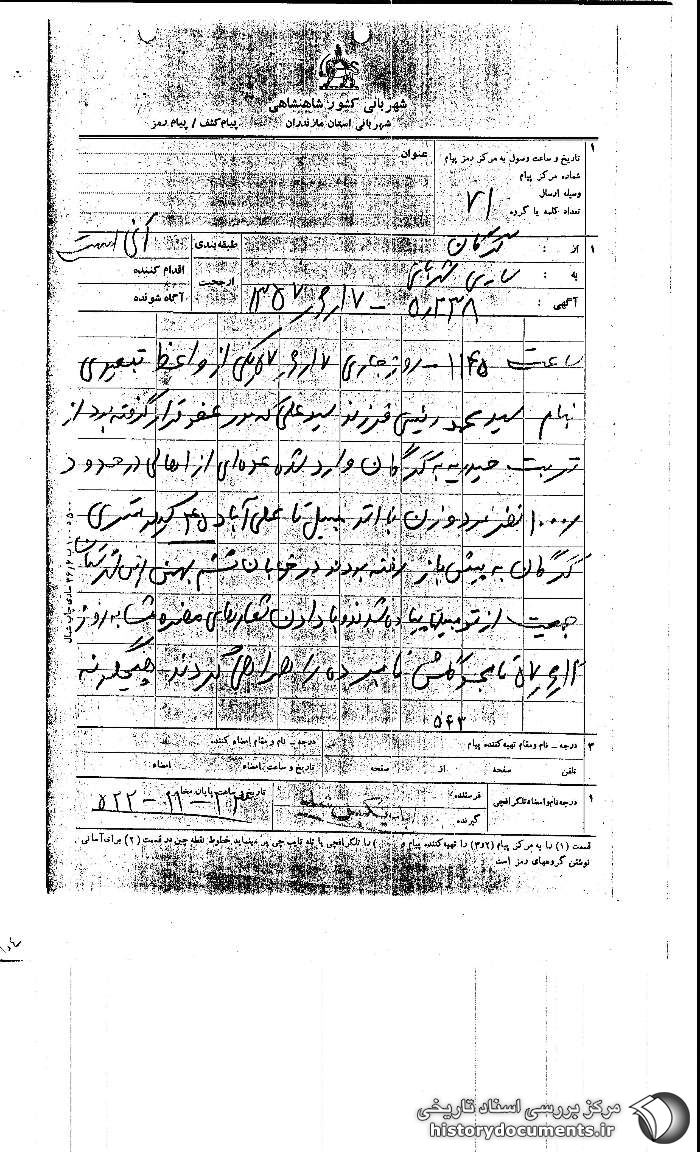 شهربانی کشور شاهنشاهی
شهربانی استان مازندران
پیام کشف / پیام رمز
۱
تاریخ و ساعت وصول به مرکز رمز پیام
شماده مرکز پیام
وسیله ارسال
تعداد کلمه یا گروه ۷۱
عنوان
۱
از : گرگان
به : ساری شهربانی
آگهی : ۵٫۳۳۸ - ۱۷ر۶ر۱۳۵۷
طبقه بندی
ارجحیت
آنی است
اقدام کننده
آگاه شونده
ساعت ۱۱۴۵ - روز جاری ۱۷ر۶ر۵۷ یکی از واعظ تبعیدی
بنام سید محمد رئیسی فرزند سید علی که مورد عفو قرار گرفته بود از
تربت حیدریه به گرگان وارد شده عده‌ای از اهالی در حدود
۱۰۰۰ نفر مرد و زن با اتومبیل تا علی‌آباد ۴۵ کیلومتری
گرگان به پیش باز رفته بودند در خیابان ششم بهمن این شهرستان
جمعیت از تومبیل پیاده شدند و با دادن شعارهای مضره مشابه روز
نامبرده را همراهی کردند چگونه
۵۴۳
۳
درجه - نام و مقام تهیه کننده پیام
درجه - نام و مقام امضاء کننده
تلفن صفحه از صفحه
تاریخ و ساعت امضاء امضاء
۱
درجه نام و امضاء تلگرافچی
فرستنده
گیرنده
تاریخ و ساعت پایان مخابره
قسمت (۱) را به مرکز پیام (۲و۳) را تهیه کننده پیام و ) را تلگرافچی یا تله تایپ چی پر مینماید خطوط نقطه چین در قسمت (۲) برای آسانی
نوشتن گروههای رمز است
مرکز بررسی اسناد تاریخی
historydocuments.ir